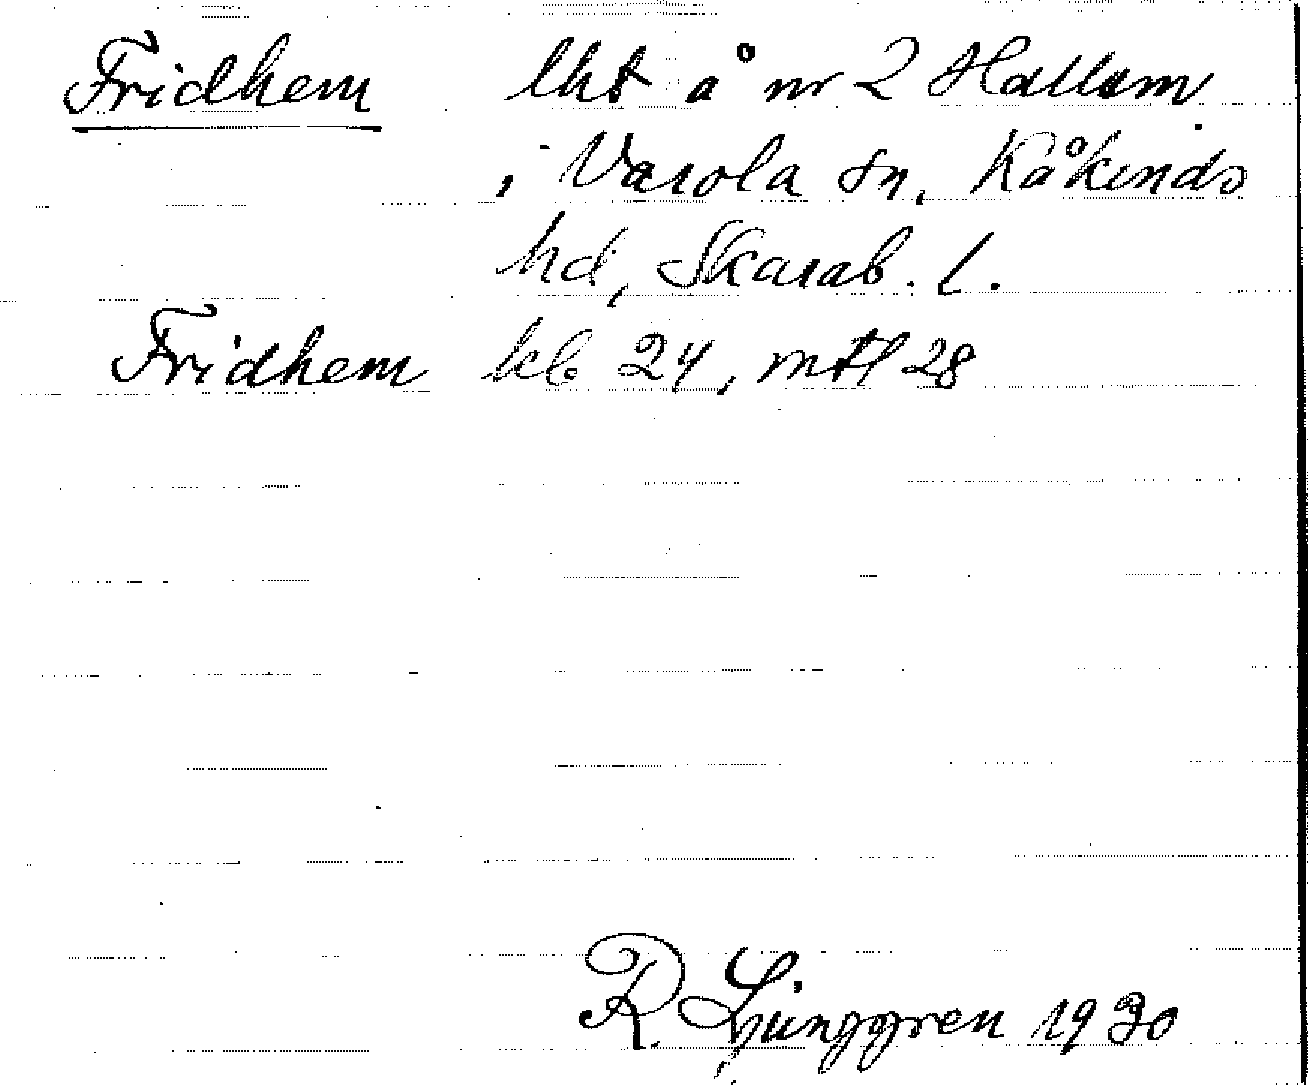 Fridhem lht å nr 2 Hallem
i Varola sn, Kåkinds
hd, Skarab. l.
Fridhem kb 24, mtl 28
R Ljunggren 1930